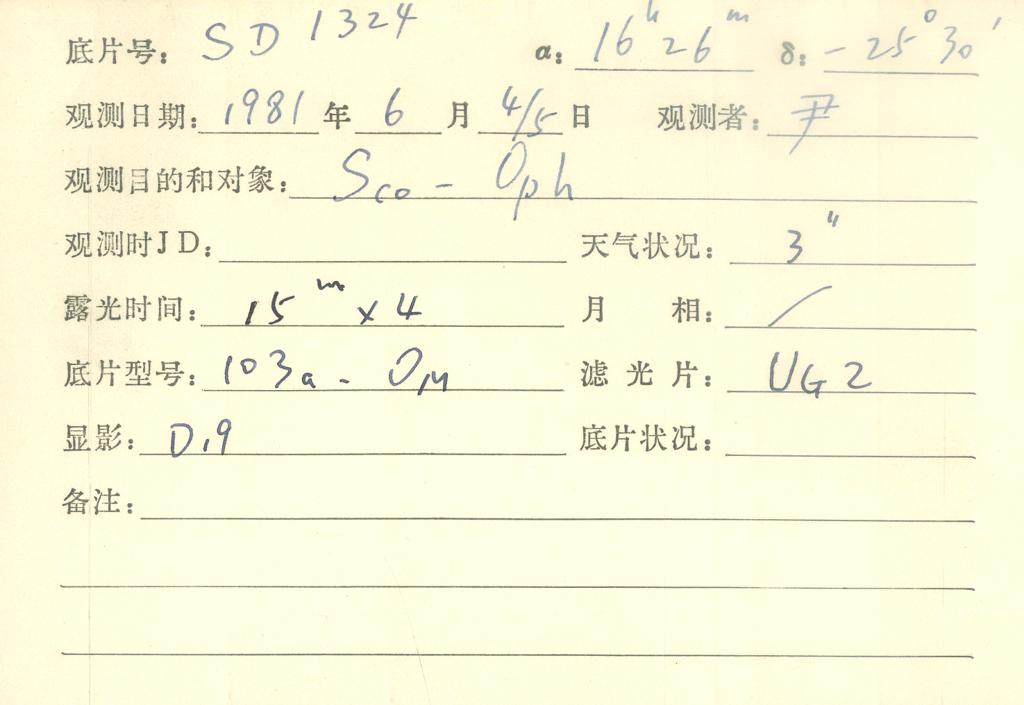 底片号: SD 1324 α: 16h 26m δ: -25° 30′
观测日期: 1981 年 6 月 4/5 日 观测者: 尹
观测目的和对象: Sco - Oph
观测时JD: 天气状况: 3″
露光时间: 15m x 4 月 相: /
底片型号: 103a - O 滤光片: UG2
显影: D19 底片状况:
备注: